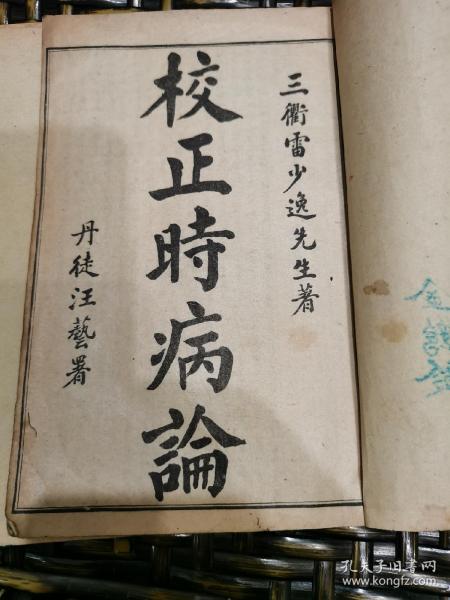 三衢雷少逸先生著
校正時病論
丹徒汪藝署
孔夫子旧书网
www.kongfz.com